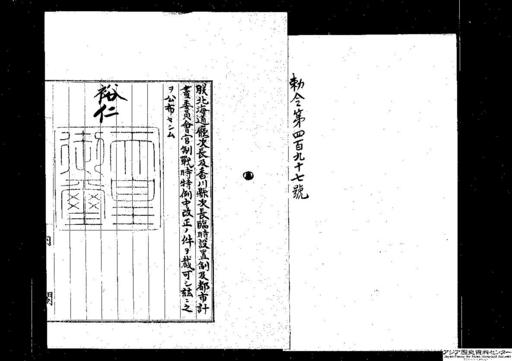 勅令第四百九十七號
朕北海道廳次長及香川縣次長臨時設置制及都市計
畫委員會官制戰時特例中改正ノ件ヲ裁可シ玆ニ之
ヲ公布セシム
裕仁
天皇
御璽
内閣
アジア歴史資料センター